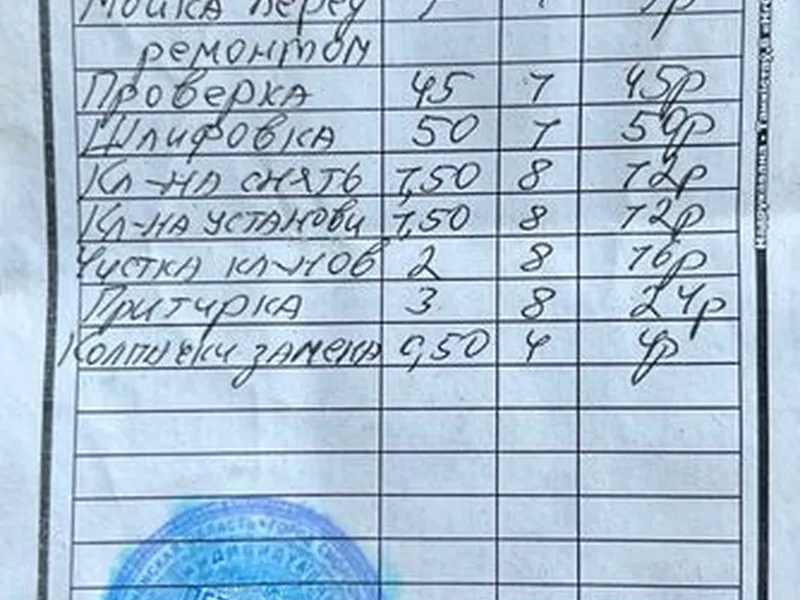 Мойка перед
ремонтом
Проверка 45 1 45р
Шлифовка 50 1 50р
Кл-на снять 1,50 8 12р
Кл-на установи 1,50 8 12р
Чистка кл-нов 2 8 16р
Притирка 3 8 24р
Колпачки замена 0,50 4 4р
ОБЛАСТЬ * ГОРОД